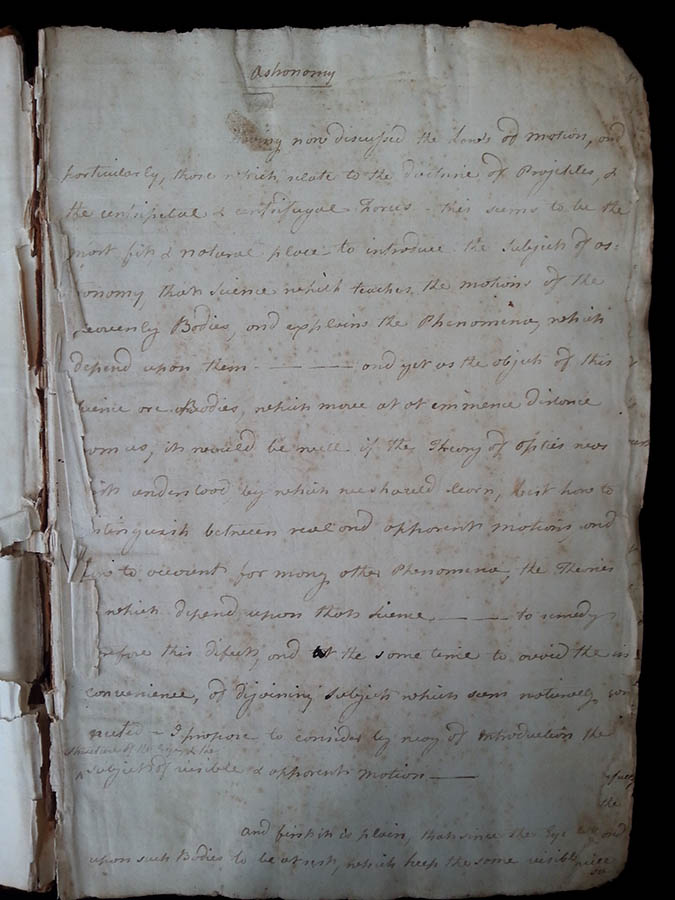 Astronomy
now discussed the Laws of Motion, and
particularly, those which relate to the doctrine of Projectiles, &
the centripetal & centrifugal Forces - this seems to be the
most fit & natural place to introduce the Subject of as:
onomy that science which teaches the motions of the
eavenly Bodies, and explains the Phenomina, which
depend upon them - — — — and yet as the objects of this
cience are Bodies, which move at
distance
om us, it would be well if the Theory of Optics was
understood by which we should learn, best how to
istinguish between real and apparent motions, and
to account for many other Phenomena, the Theories
which depend upon that science — — to remedy
efore this defect, and at the same time to avoid the in
convenience, of disjoining subjects which seem naturally con
nected - I propose to consider by way of introduction the
Structure of the Eye & the
subject of visible & apparent motion ——
the
and first it is plain, that since the Eye
and
upon such Bodies to be at rest, which keep the same visible
so